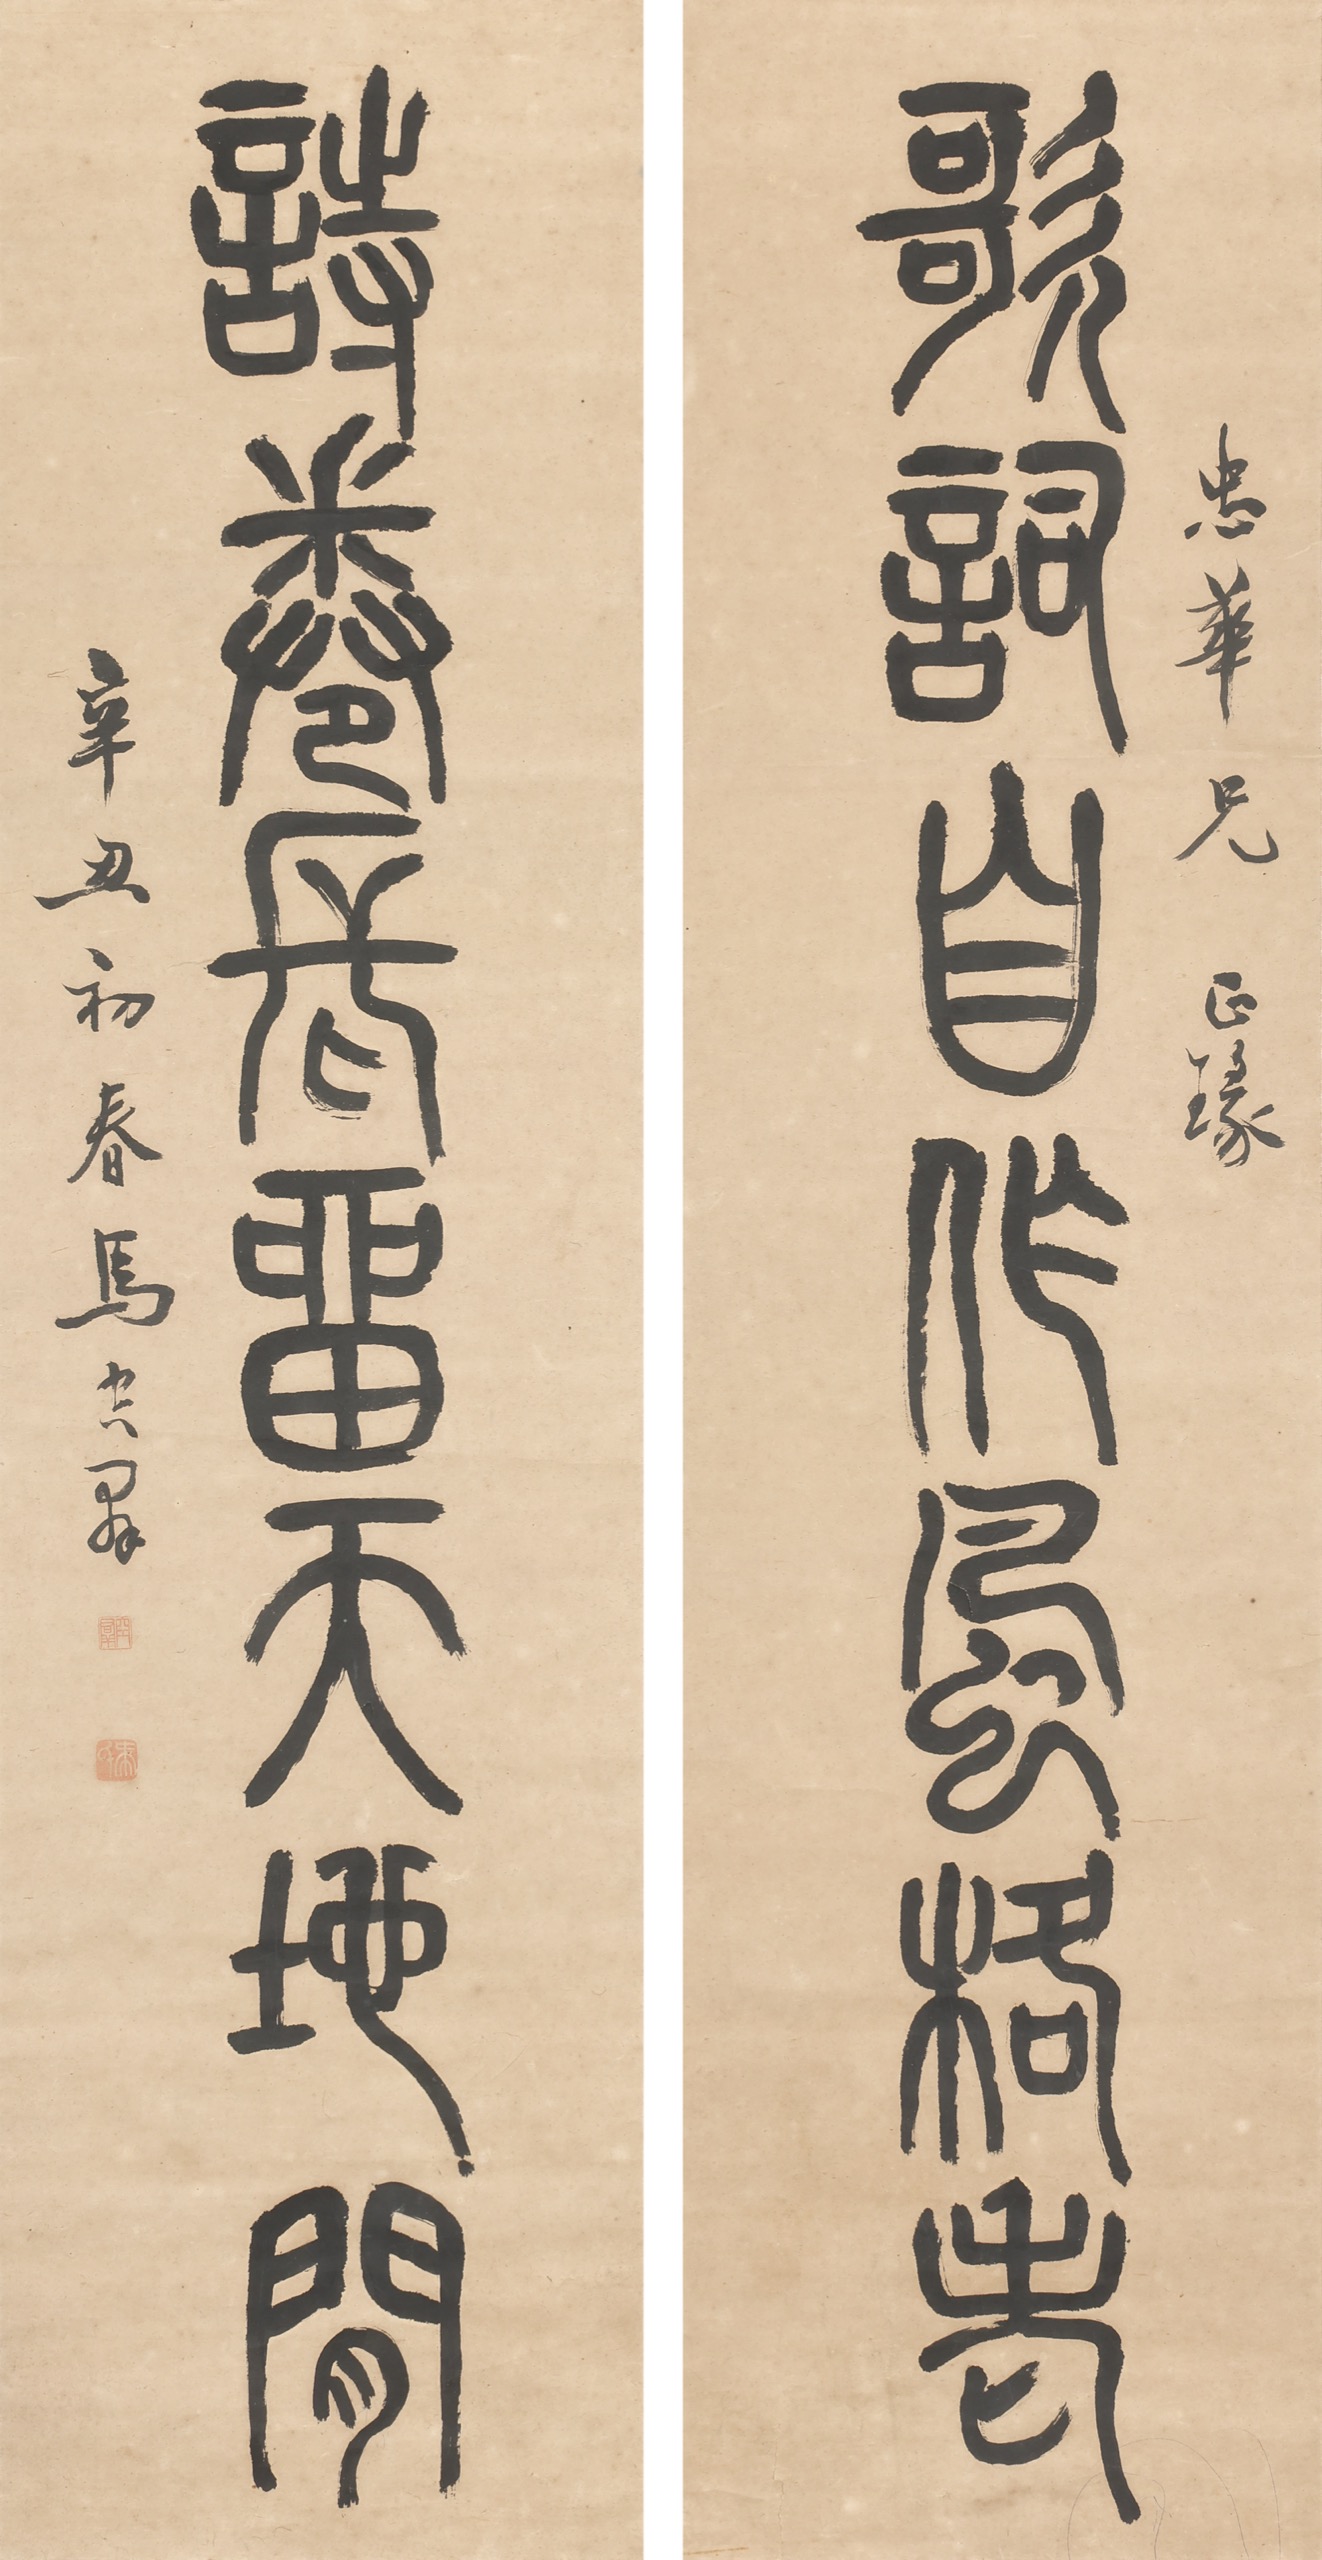 忠華兄 正瑑
歌詞自作風格老
詩卷長留天地閒
辛丑初春馬